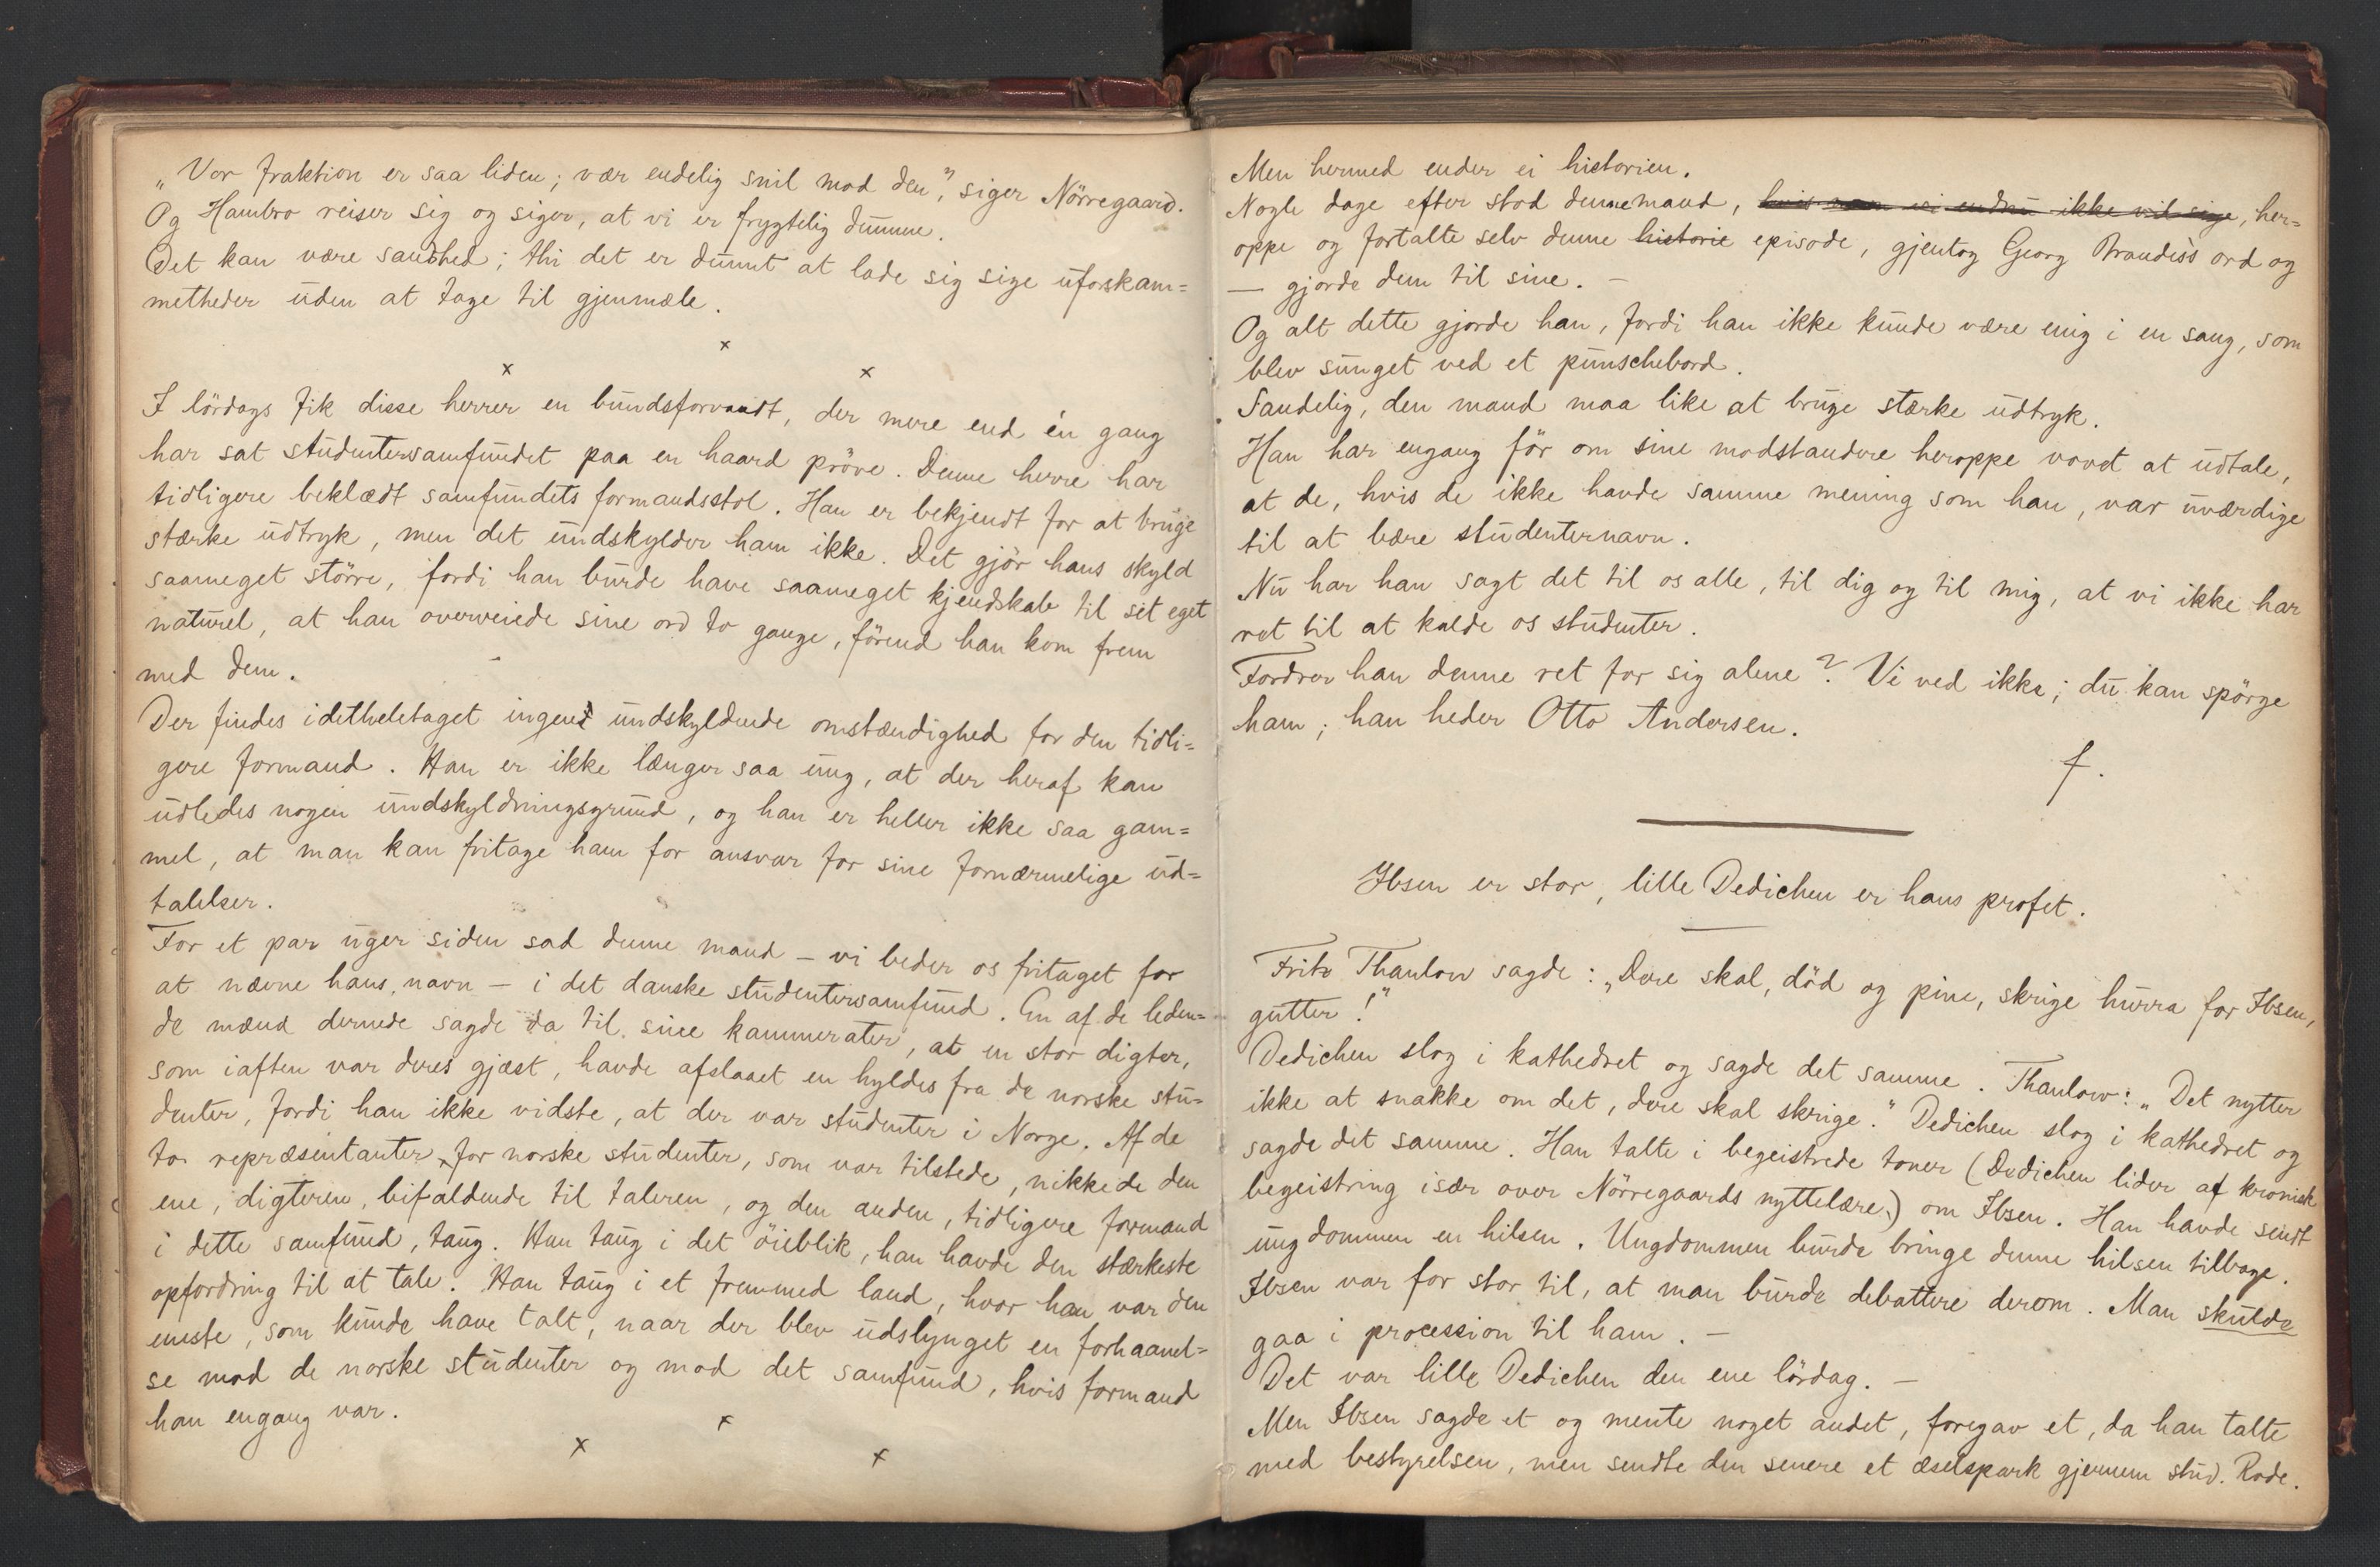 „Vor fraktion er saa liden; vær endelig snil mod den", siger Nörregaard.
Og Hambro reiser sig og siger, at vi er frygtelig dumme.
Det kan være sandhed; thi det er dumt at lade sig sige uforskam=
metheder uden at tage til gjenmæle.
x
x x
I lördags fik disse herrer en bundsforvandt, der mere end én gang
har sat studentersamfundet paa en haard pröve. Denne herre har
tidligere beklædt samfundets formandsstol. Han er bekjendt for at bruge
stærke udtryk, men det undskylder ham ikke. Det gjör hans skyld
saameget större, fordi han burde have saameget kjendskab til sit eget
naturel, at han overveiede sine ord to gange, förend han kom frem
med dem.
Der findes idetheletaget ingen undskyldende omstændighed for den tidli=
gere formand. Han er ikke længer saa ung, at der heraf kan
udledes nogen undskyldningsgrund, og han er heller ikke saa gam=
mel, at man kan fritage ham for ansvar for sine fornærmelige ud=
talelser.
For et par uger siden sad denne mand – vi beder os fritaget for
at nævne hans navn – i det danske studentersamfund. En af de leden=
de mænd dernede sagde da til sine kammerater, at en stor digter,
som iaften var deres gjæst, havde afslaaet en hyldes fra de norske stu=
denter, fordi han ikke vidste, at der var studenter i Norge. Af de
to repræsentanter for norske studenter, som var tilstede, nikkede den
ene, digteren, bifaldende til taleren, og den anden, tidligere formand
i dette samfund, taug. Han taug i det öieblik, han havde den stærkeste
opfordring til at tale. Han taug i et fremmed land, hvor han var den
eneste, som kunde have talt, naar der blev udslynget en forhaanel=
se mod de norske studenter og mod det samfund, hvis formand
han engang var.
x
x x
Men hermed ender ei historien.
Nogle dage efter stod denne mand, hvis navn vi endnu ikke vil sige, her=
oppe og fortalte selv denne historie episode, gjentog Georg Brandes's ord og
— gjorde dem til sine. –
Og alt dette gjorde han, fordi han ikke kunde være enig i en sang, som
blev sunget ved et punschebord.
Sandelig, den mand maa like at bruge stærke udtryk.
Han har engang för om sine modstandere heroppe vovet at udtale,
at de, hvis de ikke havde samme mening som han, var uværdige
til at bære studenternavn.
Nu har han sagt det til os alle, til dig og til mig, at vi ikke har
ret til at kalde os studenter.
Fordrer han denne ret for sig alene? Vi ved ikke; du kan spörge
ham; han heder Otto Andersen.
f.
Ibsen er stor, lille Dedichen er hans profet.
Fritz Thaulow sagde: „Dere skal, död og pine, skrige hurra for Ibsen,
gutter!"
Dedichen slog i kathedret og sagde det samme. Thaulow: „Det nytter
ikke at snakke om det, dere skal skrige." Dedichen slog i kathedret og
sagde det samme. Han talte i begeistrede toner (Dedichen lider af kronisk
begeistring især over Nörregaards nyttelære) om Ibsen. Han havde sendt
ungdommen en hilsen. Ungdommen burde bringe denne hilsen tilbage.
Ibsen var for stor til, at man burde debattere derom. Man skulde
gaa i procession til ham. –
Det var lille Dedichen den ene lördag. –
Men Ibsen sagde et og mente noget andet, foregav et, da han talte
med bestyrelsen, men sendte den senere et æselspark gjennem stud. Rode.